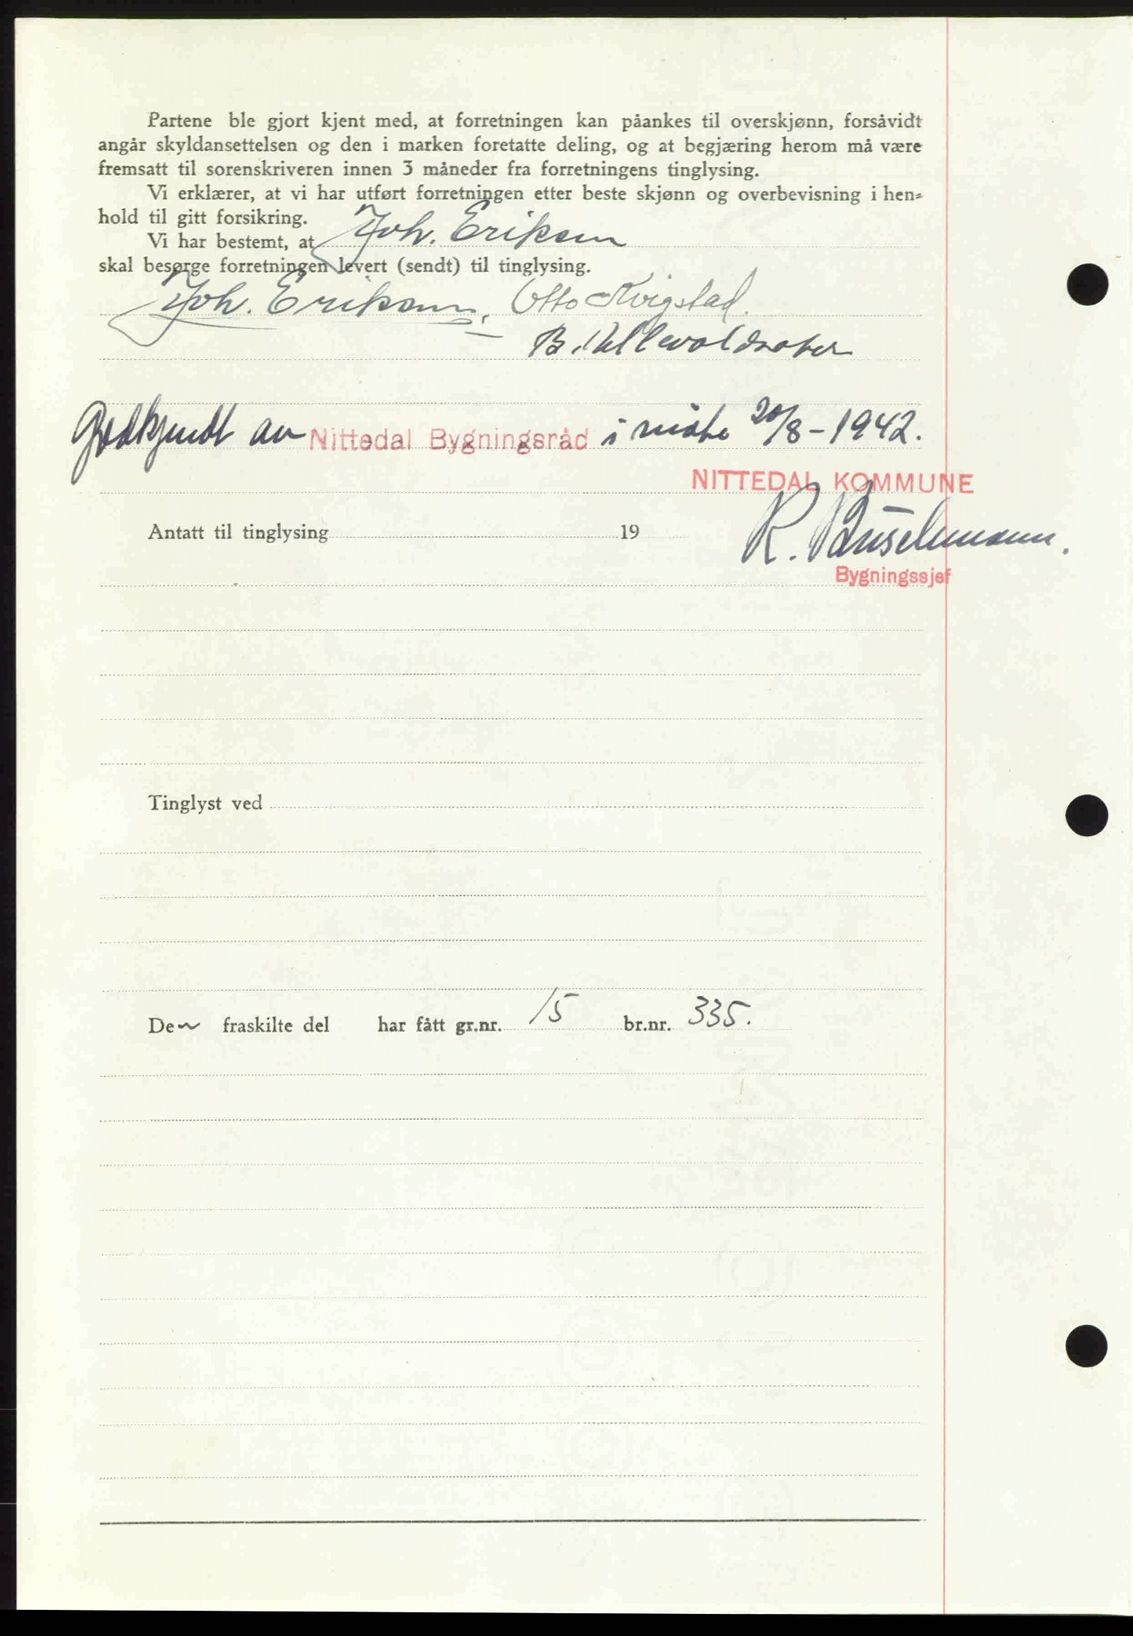 Partene ble gjort kjent med, at forretningen kan påankes til overskjønn, forsåvidt
angår skyldansettelsen og den i marken foretatte deling, og at begjæring herom må være
fremsatt til sorenskriveren innen 3 måneder fra forretningens tinglysing.
Vi erklærer, at vi har utført forretningen etter beste skjønn og overbevisning i hen-
hold til gitt forsikring.
Vi har bestemt, at Joh. Eriksen
skal besørge forretningen levert (sendt) til tinglysing.
Joh. Eriksen, Otto Kvigstad.
B.
Godkjendt av Nittedal Bygningsråd i møte 20/8-1942.
NITTEDAL KOMMUNE
Antatt til tinglysing 19 R. Buschmann.
Bygningssjef
Tinglyst ved
De~ fraskilte del har fått gr.nr. 15 br.nr. 335.